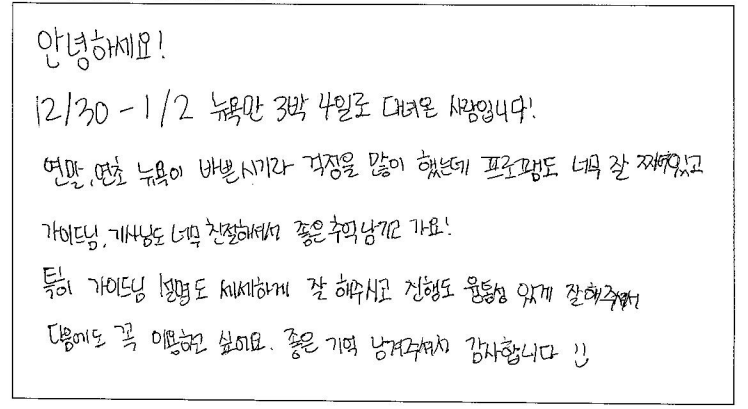 안녕하세요!
12/30 - 1/2 뉴욕만 3박 4일로 다녀온 사람입니다!
연말, 연초 뉴욕이 바쁜시기라 걱정을 많이 했는데 프로그램도 너무 잘 짜여있고
가이드님, 기사님도 너무 친절하셔서 좋은추억남기고 가요!
특히 가이드님 설명도 세세하게 잘 해주시고 진행도 융통성 있게 잘해주셔서
다음에도 꼭 이용하고 싶어요. 좋은 기억 남겨주셔서 감사합니다 :)